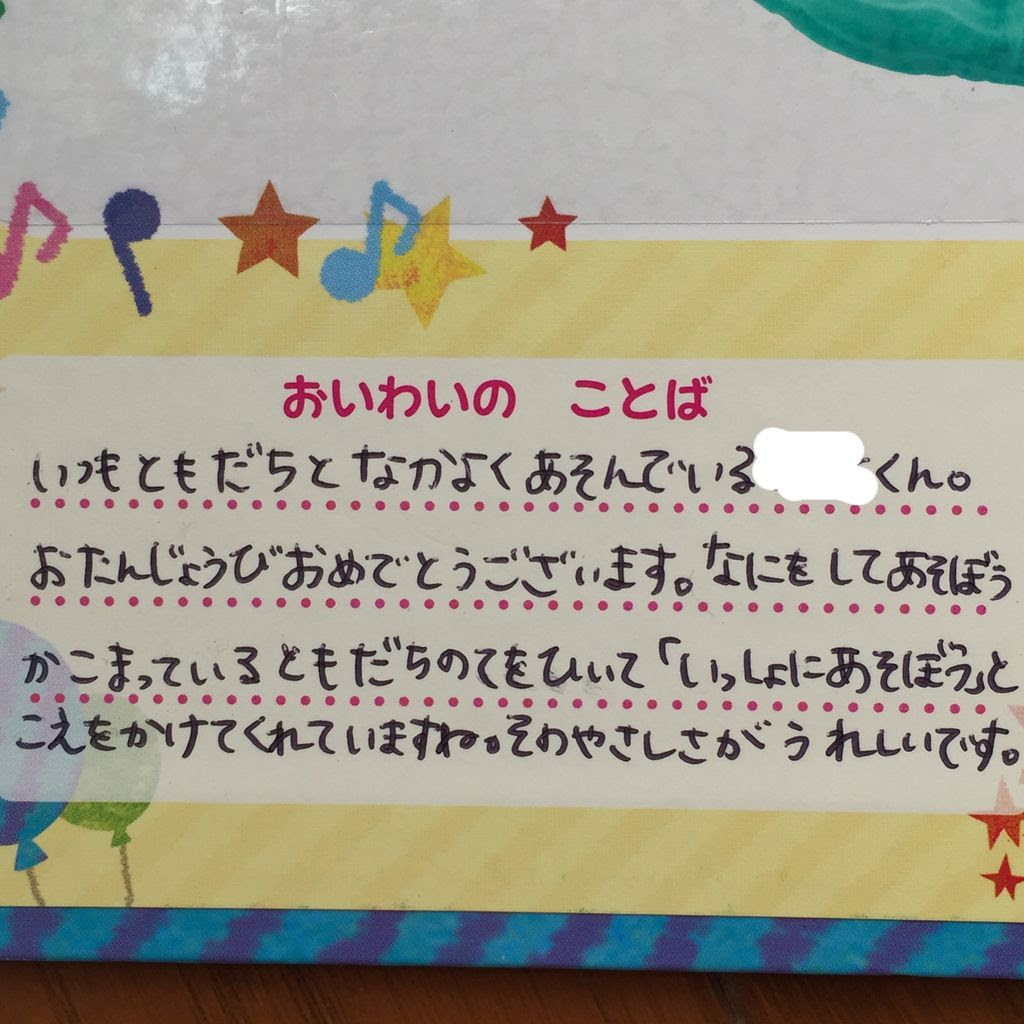 おいわいの　ことば
いつもともだちとなかよくあそんでいる くん。
おたんじょうびおめでとうございます。なにをしてあそぼう
かこまっているともだちのてをひいて「いっしょにあそぼう」と
こえをかけてくれていますね。そのやさしさがうれしいです。